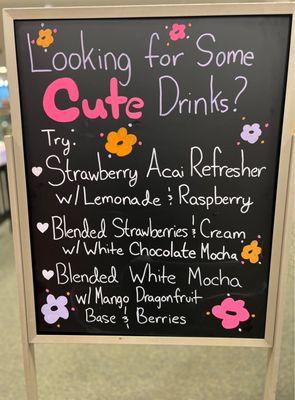 Looking for Some
Cute Drinks?
Try:
Strawberry Acai Refresher
w/ Lemonade & Raspberry
Blended Strawberries & Cream
w/ White Chocolate Mocha
Blended White Mocha
w/ Mango Dragonfruit
Base & Berries